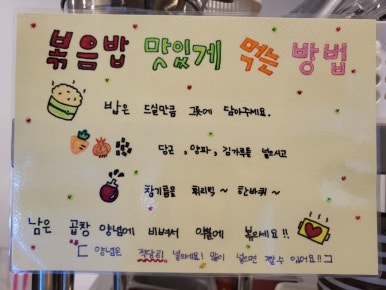 볶음밥 맛있게 먹는 방법
밥은 드실만큼 그릇에 담아주세요.
당근, 양파, 김가루를 넣으시고
참기름을 휘리릭~ 한바퀴~
남은 곱창 양념에 비벼서 이불에 볶아요!!
[양념은 적당히 넣으세요! 많이 넣으면 짤수 있어요!!]